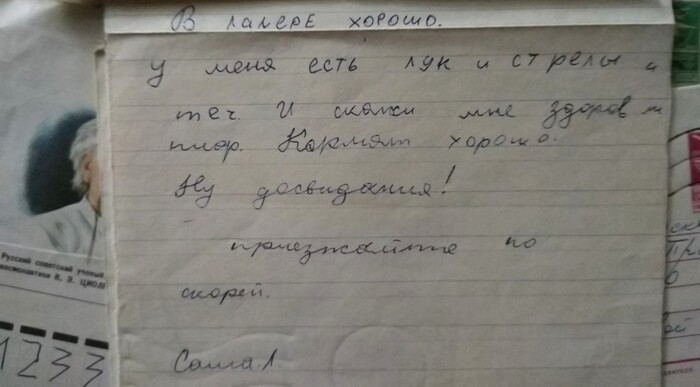 В лагере хорошо.
У меня есть лук и стрелы и
меч. И скажи мне здоров ли
тиор. Кормят хорошо.
Ну досвидания!
приезжайте по
скорей.
Саша Л.
Русский советский ученый
космонавтики К. Э. ЦИОЛ
1233